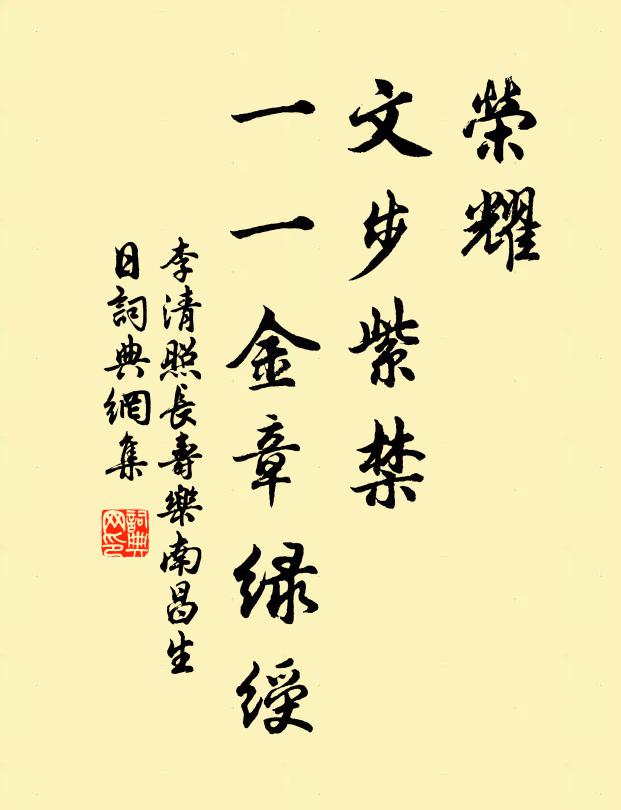 榮耀
文步紫禁
一一金章綠綬
李清照長壽樂南昌生
日詞典網集
詞典
网印